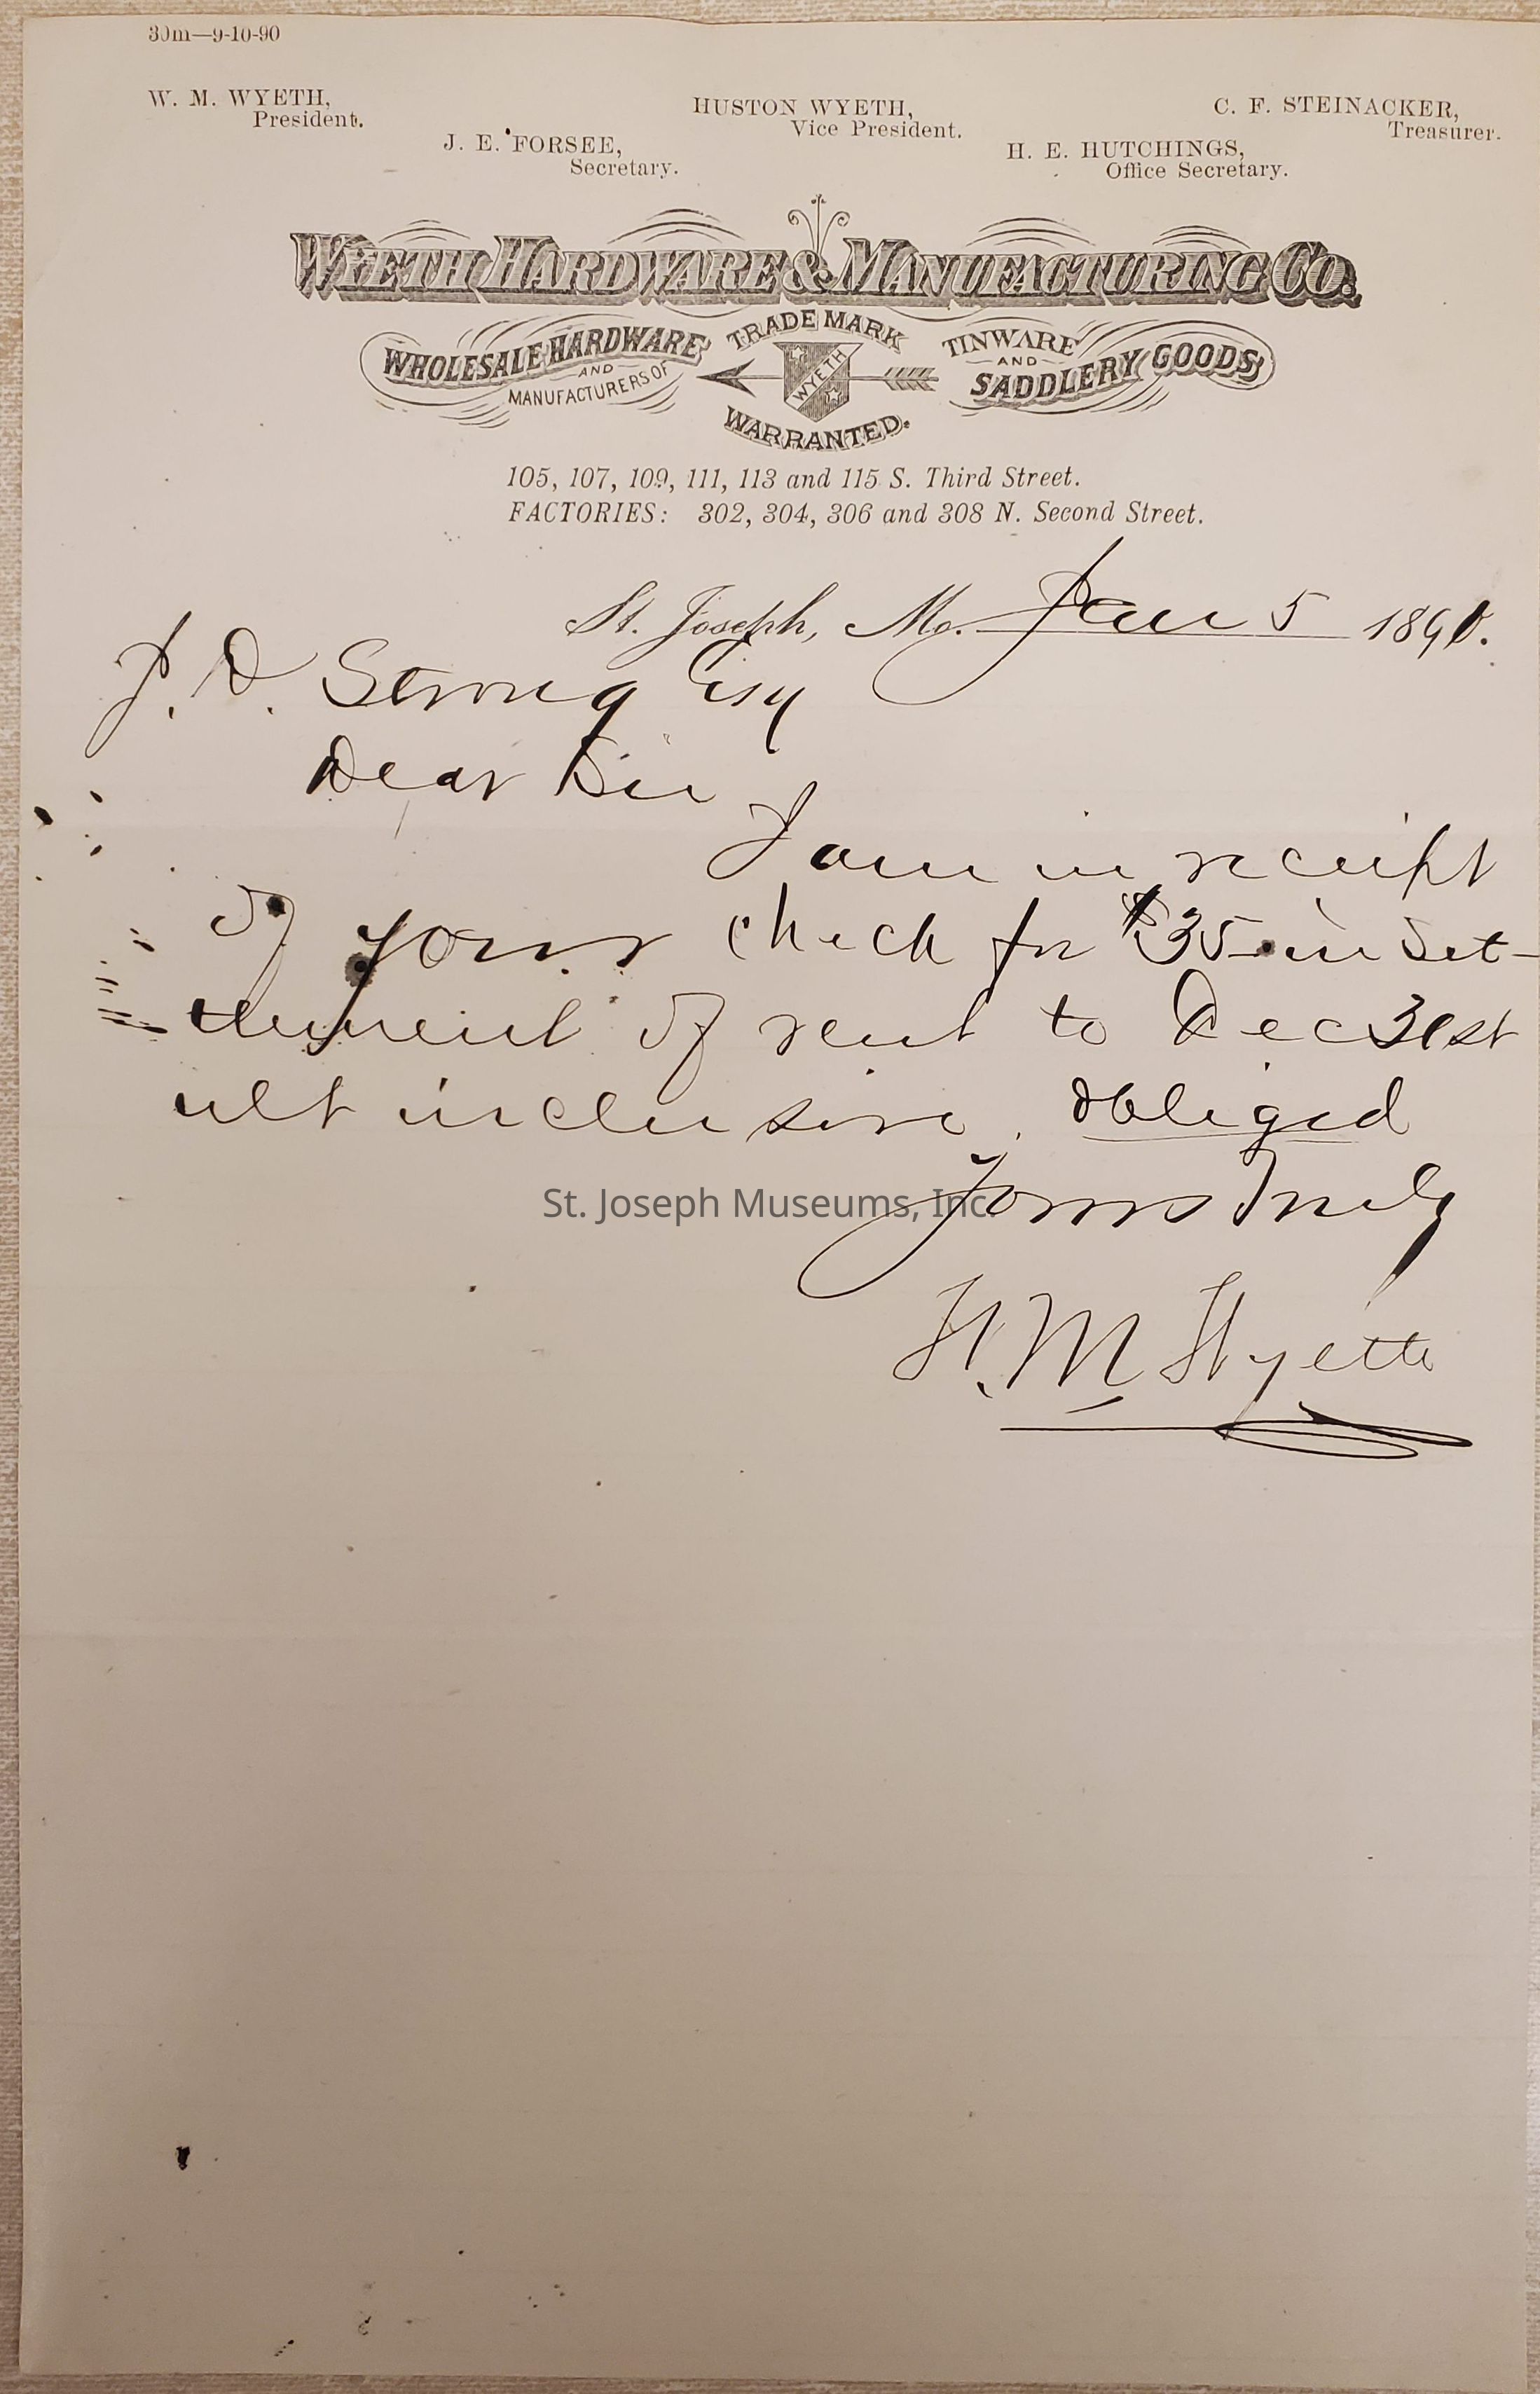 30m—9-10-90
W. M. WYETH,
President.
J. E. FORSEE,
Secretary.
HUSTON WYETH,
Vice President.
H. E. HUTCHINGS,
Office Secretary.
C. F. STEINACKER,
Treasurer.
WYETH HARDWARE & MANUFACTURING CO.
WHOLESALE HARDWARE
AND
MANUFACTURERS OF
TRADE MARK
WYETH
WARRANTED.
TINWARE
AND
SADDLERY GOODS
105, 107, 109, 111, 113 and 115 S. Third Street.
FACTORIES: 302, 304, 306 and 308 N. Second Street.
St. Joseph, Mo. Jan 5 1891.
J. D. Strong Esq
Dear Sir
I am in receipt
of yours check for $35 in set-
tlement of rent to Dec 31st
ult inclusive. obliged
Yours Truly
W. M Wyeth
St. Joseph Museums, Inc.